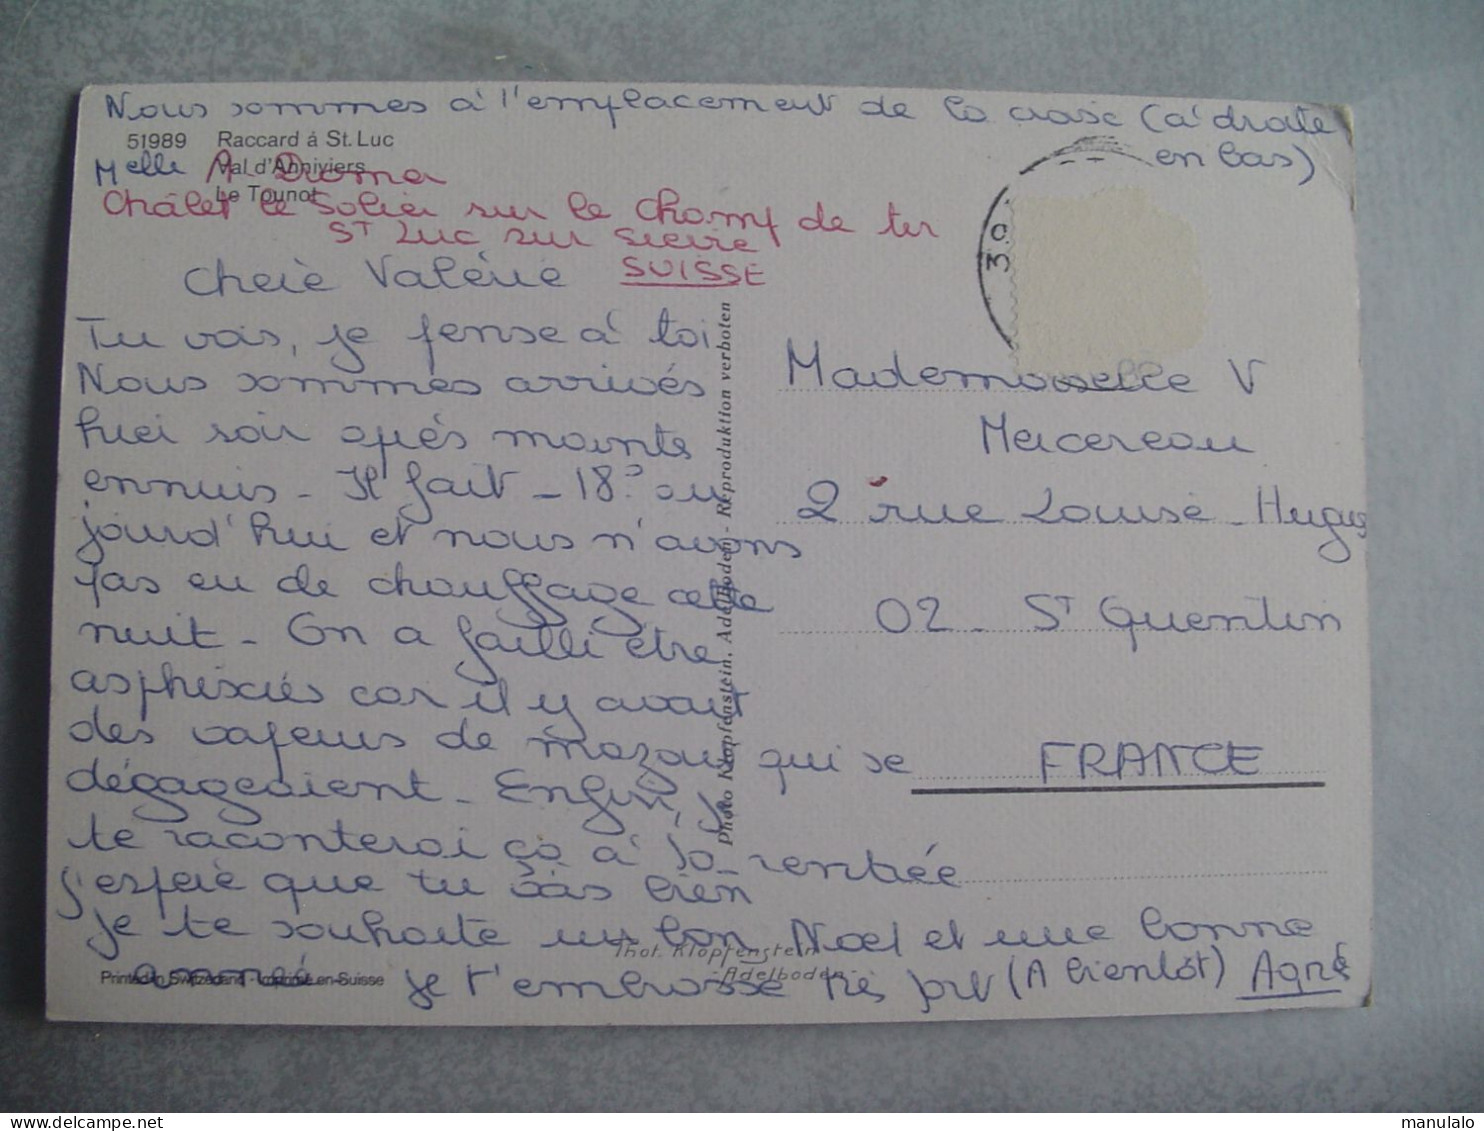 Nous sommes à l'emplacement de la croix (à droite
en bas)
51989 Raccard à St. Luc
Val d'Anniviers
Le Tounot
Melle A.
Châlet le Solier sur le champ de ter
ST LUC sur Sierre
SUISSE
Chère Valérie
Tu vois, je pense à toi
Nous sommes arrivés
hier soir après maints
ennuis - Il fait - 18° au
jourd'hui et nous n'avons
pas eu de chauffage cette
nuit - On a failli être
asphixiés car il y avait
des vapeurs de mazout qui se
dégageaient - Enfin, je
te raconterai ça à la rentrée
J'espère que tu vas bien
je te souhaite un bon Noel et une bonne
année je t'embrasse très fort (A bientôt) Agnès
Photo Klopfenstein, Adelboden - Reproduktion verboten
Phot. Klopfenstein
Adelboden
Printed in Switzerland - Imprimé en Suisse
30
Mademoiselle V
Mercereau
2 rue Louise - Hugus
02 - ST Quentin
FRANCE
www.manulalo.com